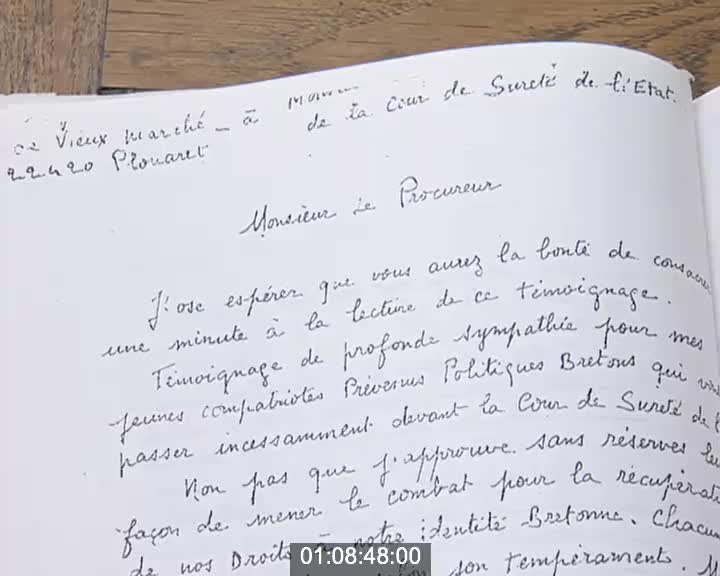 ce Vieux marché - à
de la Cour de Sureté de l'Etat.
22420 Plouaret
Monsieur Le Procureur
J'ose espérer que vous aurez la bonté de consacrer
une minute à la lecture de ce témoignage.
Témoignage de profonde sympathie pour mes
jeunes compatriotes Prévenus Politiques Bretons qui
passer incessamment devant la Cour de Sureté de
Non pas que j'approuve sans réserves
façon de mener le combat pour la
de nos Droits à notre identité Bretonne. Chacun
son tempérament.
01:08:48:00